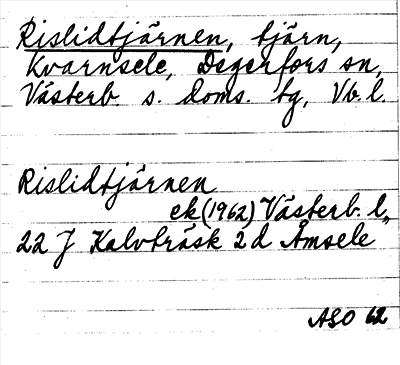 Rislidtjärnen, tjärn,
Kvarnsele, Degerfors sn,
Västerb. s. doms. tg, Vb. l.
Rislidtjärnen
ek (1962) Västerb. l.,
22 J Kalvträsk 2d Åmsele
ASO 62